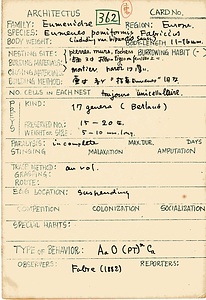 ARCHITECTUS 362 CARD No.
FAMILY: Eumenidae REGION: Europe.
SPECIES: Eumenes pomiformis Fabricius
BODY WEIGHT: BODY LENGTH 11-16mm.
NESTING SITE: pierres, murs, rochers BURROWING HABIT (-)
BUILDING MATERIALS:
CLOSING MATERIALS: mortier
BUILDING METHOD:
NO. CELLS IN EACH NEST toujours unicellulaire.
PREYS KIND: 17 genera (Berland)
PROVISIONED NO. 15-20
WEIGHT OR SIZE 5-10 mm. long.
PARALYSIS: incomplete MAX. DUR. DAYS
STINGING MALAXATION AMPUTATION
TRACT METHOD: au vol.
GRASPING:
ROUTE:
EGG LOCATION: suspending
COMPETITION COLONIZATION SOCIALIZATION
SPECIAL HABITS:
TYPE OF BEHAVIOR:
OBSERVERS: REPORTERS:
Fabre (1882)